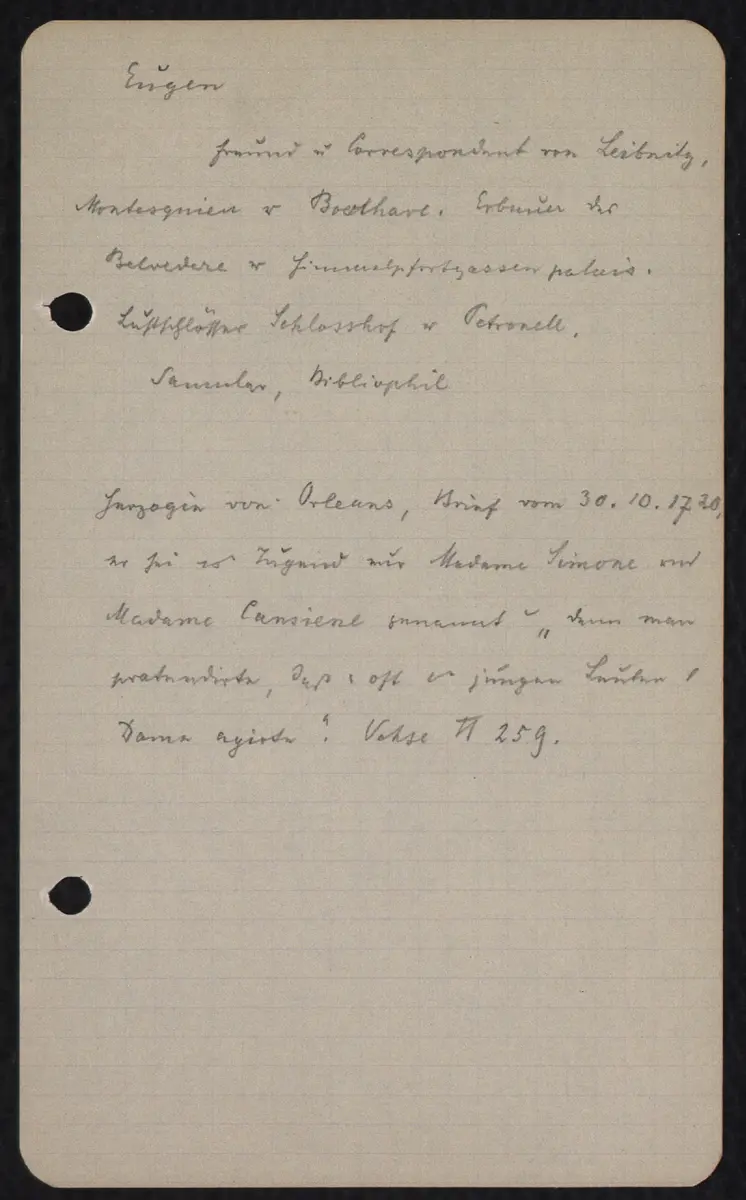 Eugen
Freund u Correspondent von Leibnitz,
Montesquieu u Boerhave. Erbauer des
Belvedere u Himmelpfortgassenpalais.
Lustschlösser Schlosshof u Petronell.
Sammler, Bibliophil
Herzogin von Orleans, Brief vom 30. 10. 1720,
er sei Jugend nur Madame Simone und
Madame Cansiene genannt „ denn man
pratendirte, daß oft jungen Leuten
Dame agirte". Vehse II 259.